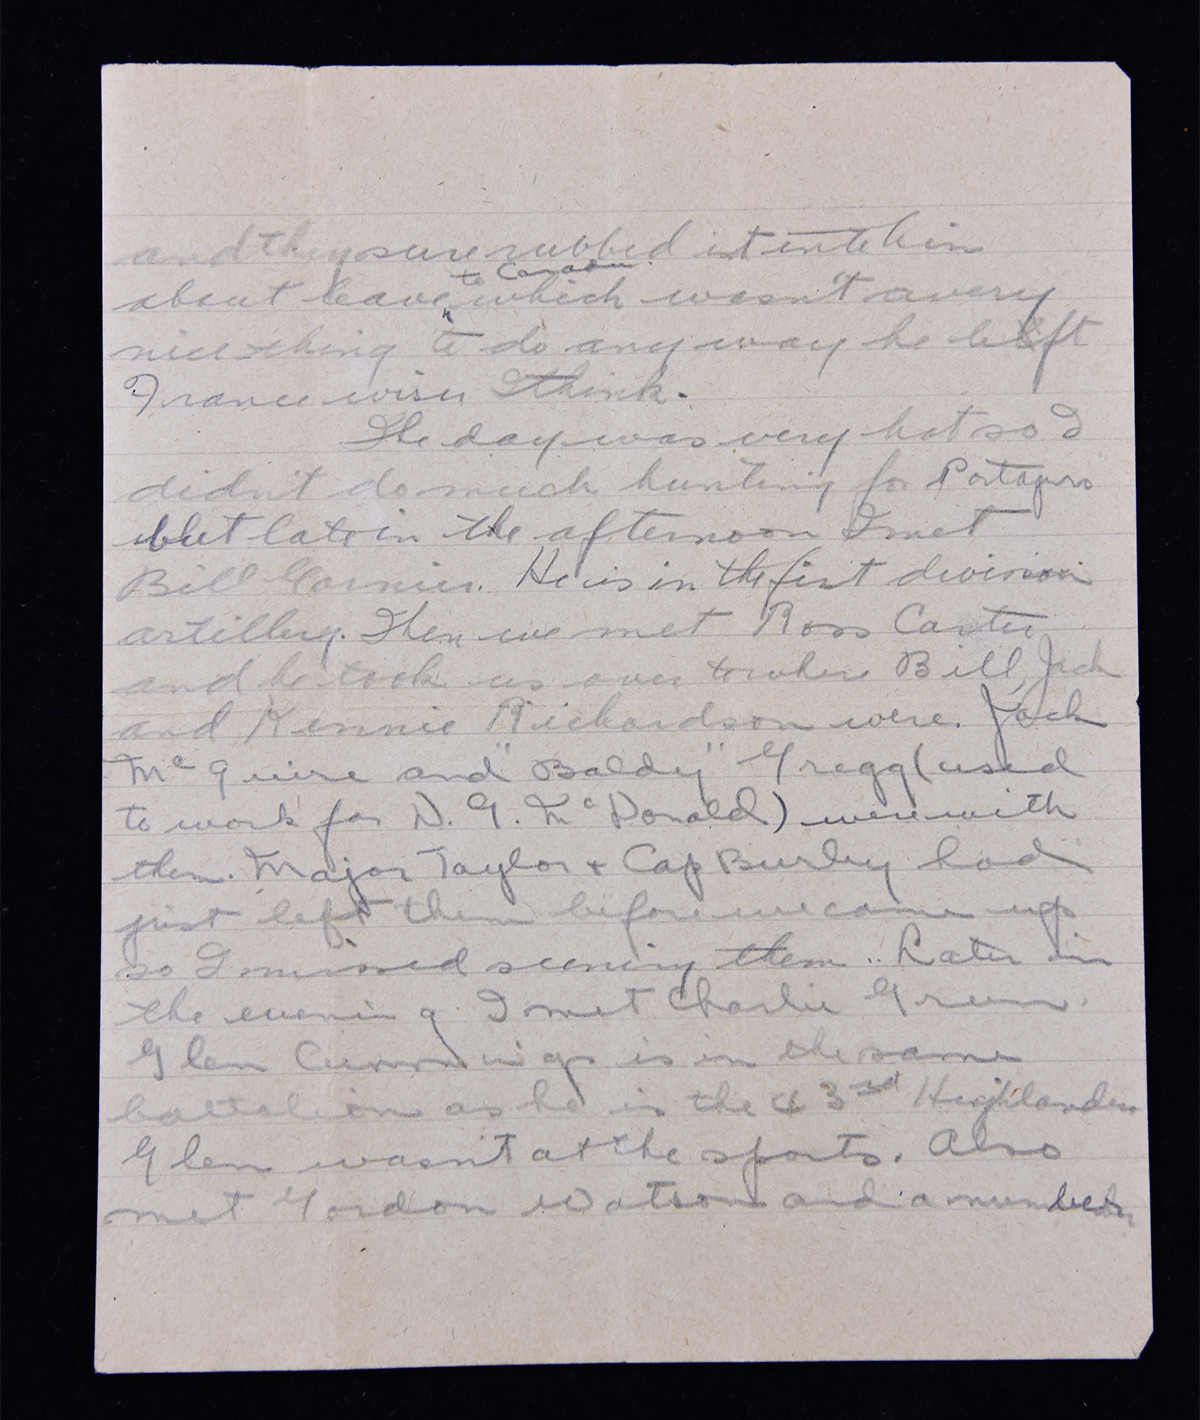 and they sure rubbed it into him
about leave to Canada which wasn't a very
nice thing to do any way he left
France wiser I think.
The day was very hot so I
didn't do much hunting for
but late in the afternoon I met
Bill He is in the first division
artillery. Then we met Ross Carter
and he took us over to where Bill, Jack
and Kennie Richardson were. Jack
McGuire and "Baldy" Gregg (used
to work for D. G. McDonald) were with
them. Major Taylor + Cap Burley had
just left them before we came up
so I missed seeing them. Later in
the evening I met Charlie Green.
Glen Cummings is in the same
battalion as he is the 43rd Highlanders
Glen wasn't at the sports. Also
met Gordon Watson and a number